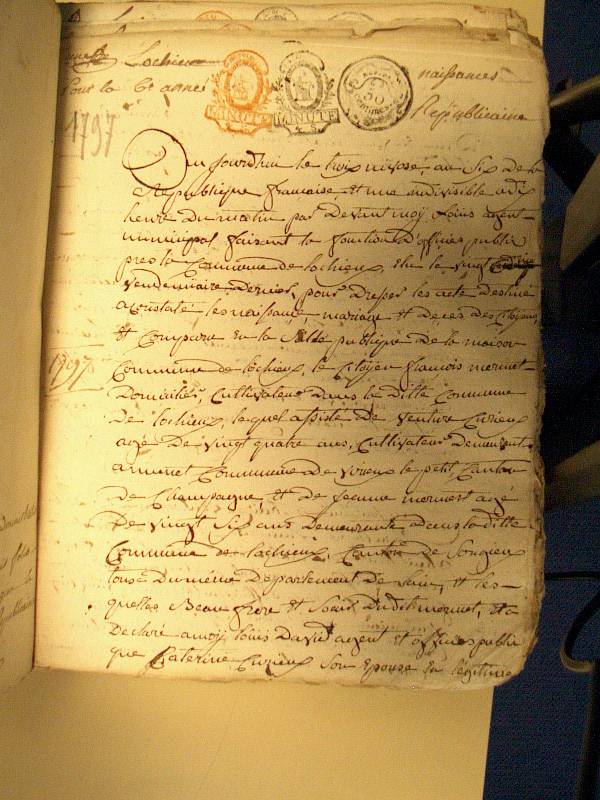 Lochieu
naissances
pour la 6e année
Républicaine
MINUTE
MINUTE
50
1797
Aujourd'hui le trois nivose, au Six de la
République francaise et une indivisible a dix
heure Du matin par Devant moy, Louis agent
municipal faisant la fonction D'officier public
pres la Commune de lochieux, Elu le vingt
vendemiaire Dernier, pour Dresser les acte Destiné
a constaté les naissance, mariage et Deces des Citoyens,
Et Comparu En la Salle publique De la maison
1797
Commune de lochieux, le Citoyen francois mermet
Domicilié, Cultivateur Dans la Ditte Commune
De lochieux, lequel assisté De venture Curieux
agé De vingt quatre ans, Cultivateur Demeurant
a munet Commune De virieux le petit Canton
de Champagne, Et de jeanne mermet agé
De vingt Six ans Demeurante Dans la ditte
Commune de lochieux, Canton de Songieu
tous Dumeme Departement De l'ain, Et les
quelles Beaufrere et Soeur Dudit mermet, Et a
Declaré a moy louis David agent et officier publi
que Caterine Curieux Son Epouse En légitime